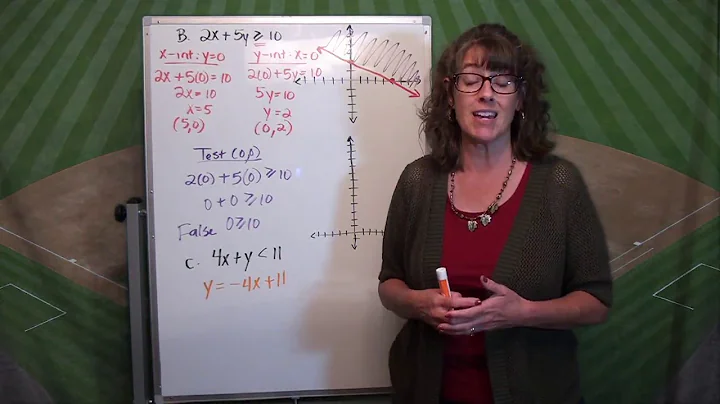 B. 2x + 5y ⩾ 10
x-int: y=0
2x + 5(0) = 10
2x = 10
x = 5
(5,0)
y-int: x=0
2(0) + 5y = 10
5y = 10
y = 2
(0,2)
Test (0,0)
2(0) + 5(0) ⩾ 10
0 + 0 ⩾ 10
False 0 ⩾ 10
C. 4x + y < 11
y = -4x + 11